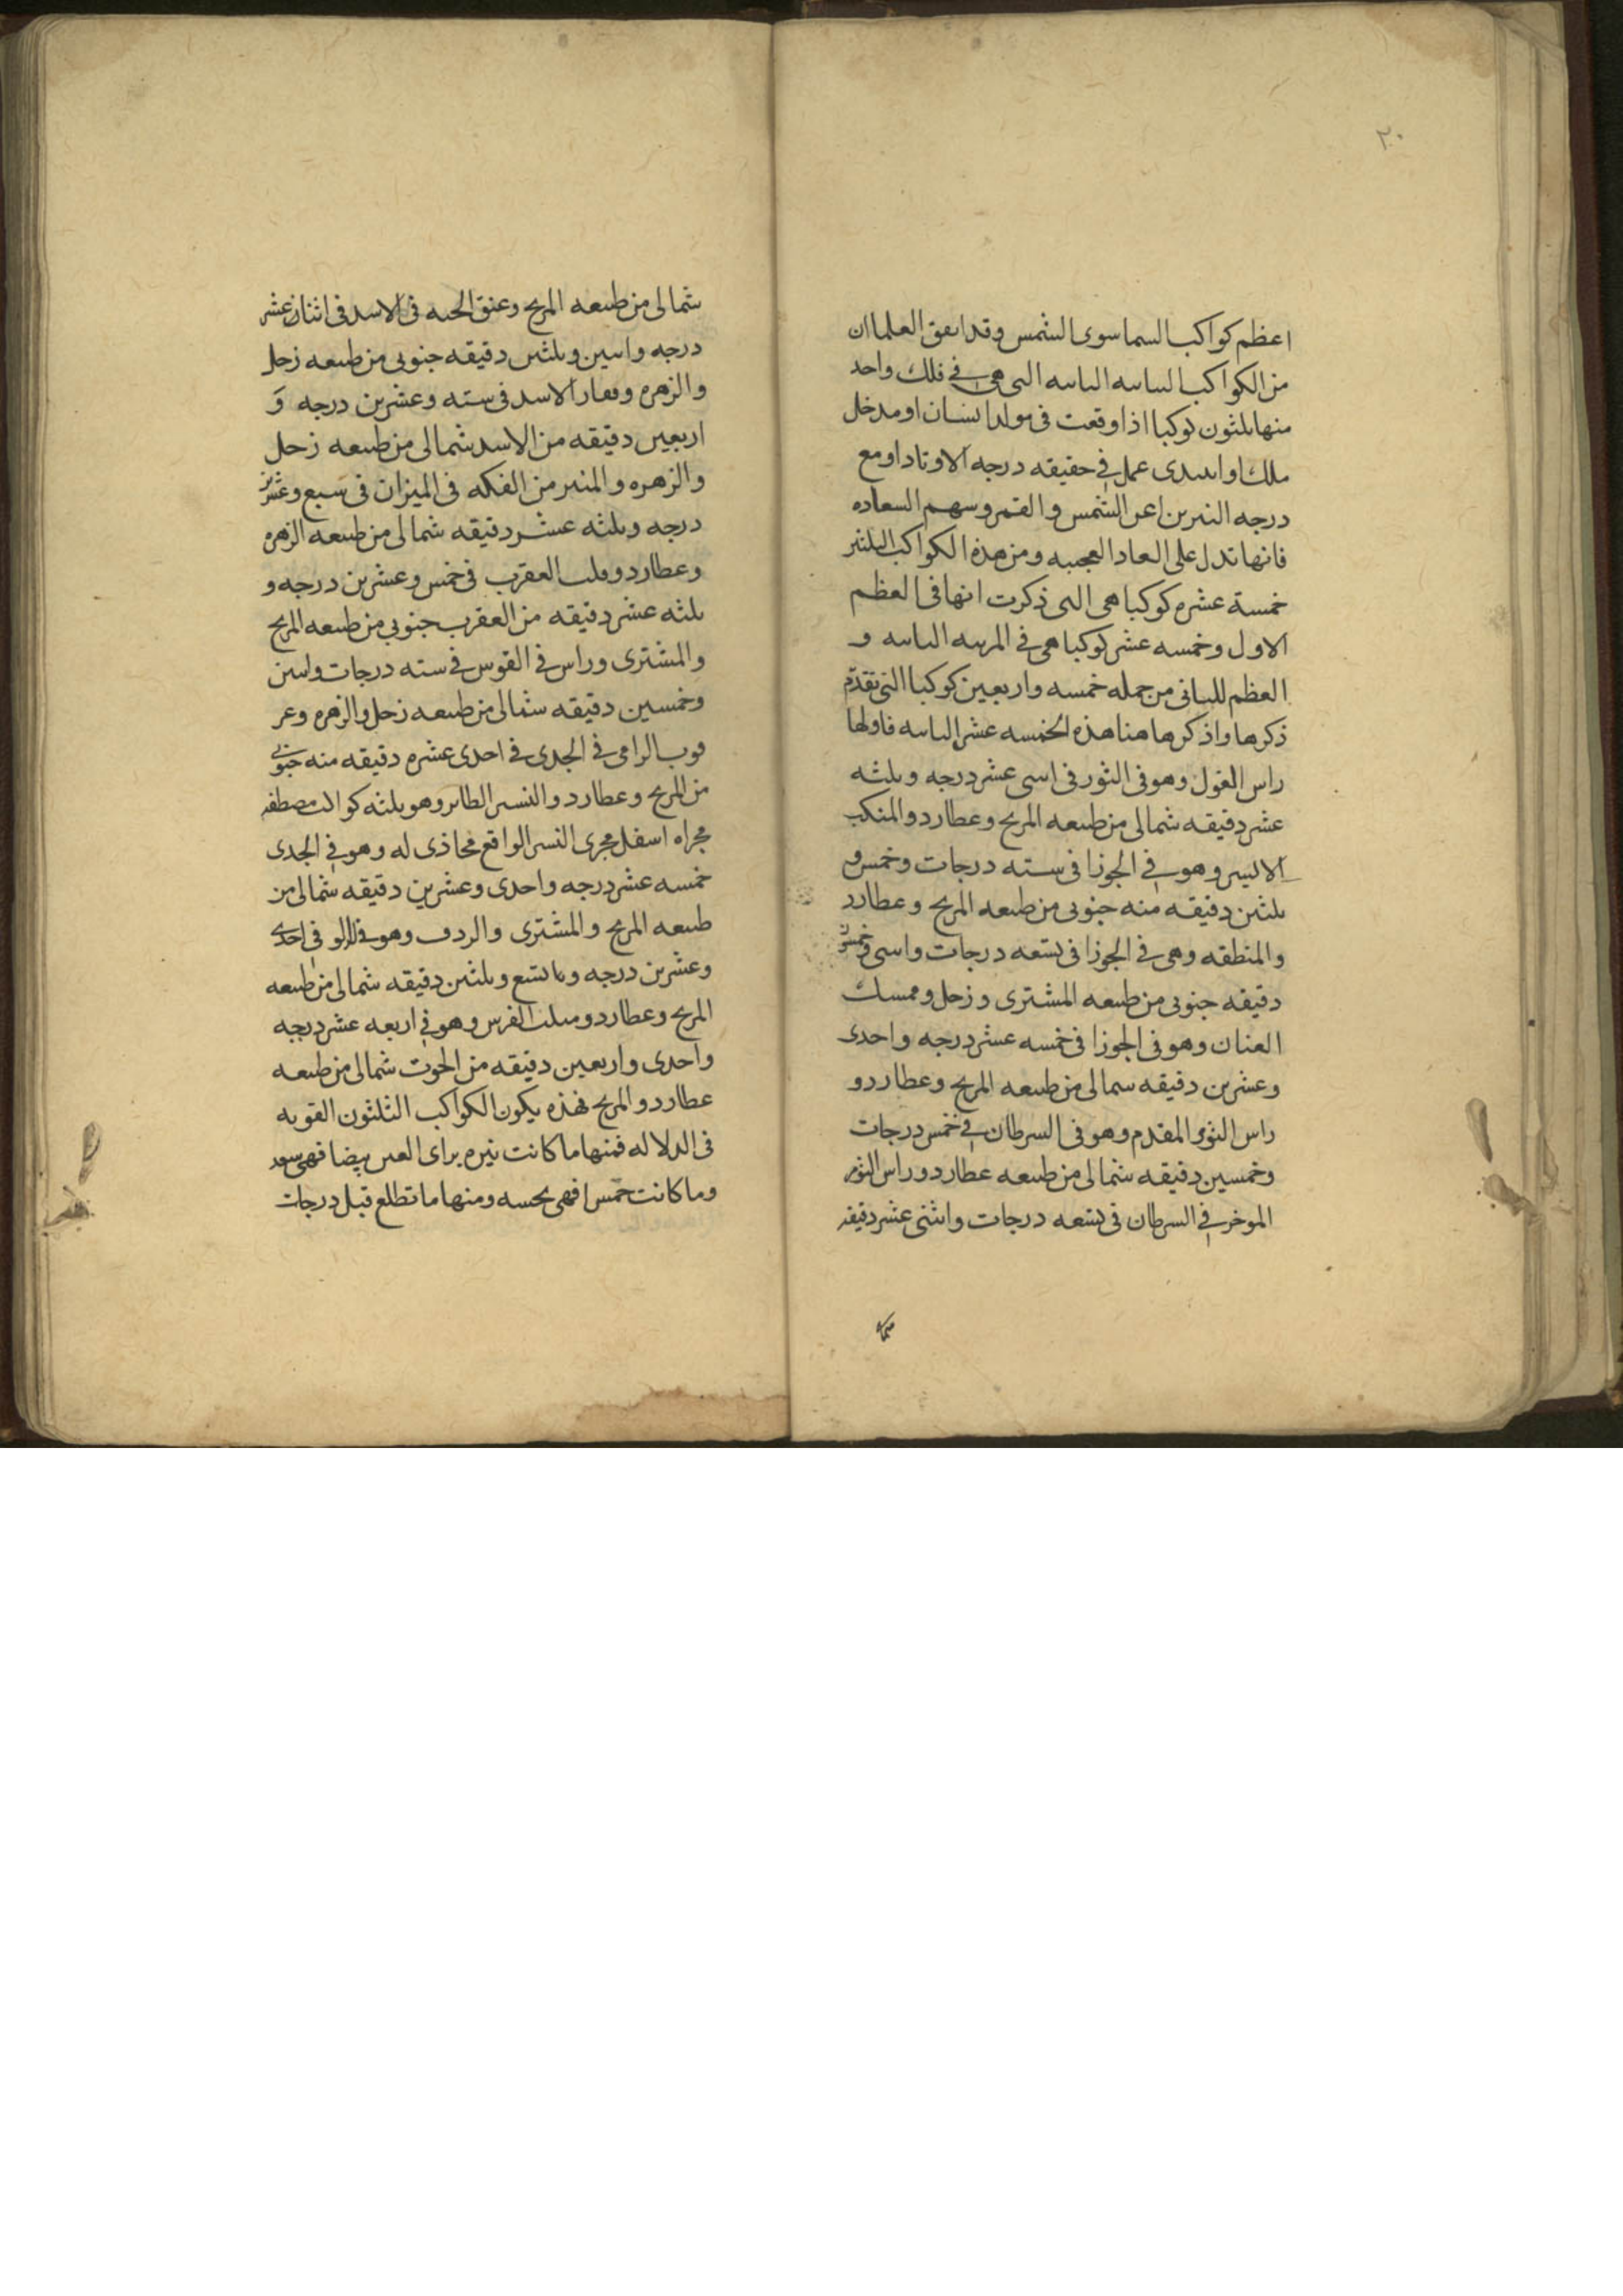 ٢٠
اعظم كواكب السما سوى الشمس وقد اتفق العلما ان
من الكواكب البيابانيه الثابته التى هى فى فلك واحد
منها ثلثون كوكبا اذا وقعت فى مولد انسان او مدخل
ملك او ابتدى عمل فى حقيقه درجه الاوتاد او مع
درجه النيرين اعن الشمس والقمر وسهم السعاده
فانها تدل على العجيبه ومن هذه الكواكب الثلثين
خمسة عشره كوكبا هى التى ذكرت انها فى العظم
الاول وخمسه عشر كوكبا هى فى المرتبه الثانيه و
العظم الثانى من جمله خمسه واربعين كوكبا التى تقدم
ذكرها واذكرها هنا هذه الخمسه عشر الثانيه فاولها
راس الغول وهو فى الثور فى اثنى عشر درجه وثلثه
عشر دقيقه شمالى من طبيعه المريخ وعطارد والمنكب
الايسر وهو فى الجوزا فى سته درجات وخمس و
ثلثين دقيقه منه جنوبى من طبيعه المريخ وعطارد
والمنطقه وهى فى الجوزا فى تسعه درجات واثنى وخمسين
دقيقه جنوبى من طبيعه المشترى وزحل وممسك
العنان وهو فى الجوزا فى خمسه عشر درجه واحدى
وعشرين دقيقه شمالى من طبيعه المريخ وعطارد و
راس التوم المقدم وهو فى السرطان فى خمس درجات
وخمسين دقيقه شمالى من طبيعه عطارد وراس التوم
الموخر فى السرطان فى تسعه درجات واثنى عشر دقيقه
شمالى
شمالى من طبيعه المريخ وعنق الحيه فى الاسد فى اثنان عشر
درجه واثنين وثلثين دقيقه جنوبى من طبيعه زحل
والزهره وفقار الاسد فى سته وعشرين درجه و
اربعين دقيقه من الاسد شمالى من طبيعه زحل
والزهره والمنير من الفكه فى الميزان فى سبع وعشرين
درجه وثلثه عشر دقيقه شمالى من طبيعه الزهره
وعطارد وقلب العقرب فى خمس وعشرين درجه و
ثلثه عشر دقيقه من العقرب جنوبى من طبيعه المريخ
والمشترى وراس فى القوس فى سته درجات واثنين
وخمسين دقيقه شمالى من طبيعه زحل والزهره وعر
قوب الرامى فى الجدى فى احدى عشره دقيقه منه جنوبى
من المريخ وعطارد والنسر الطاير وهو ثلثه كواكب مصطفه
مجراه اسفل مجرى النسر الواقع محاذى له وهو فى الجدى
خمسه عشر درجه واحدى وعشرين دقيقه شمالى من
طبيعه المريخ والمشترى والردف وهو فى الدلو فى احدى
وعشرين درجه وتسع وثلثين دقيقه شمالى من طبيعه
المريخ وعطارد ومنكب الفرس وهو فى اربعه عشر درجه
واحدى واربعين دقيقه من الحوت شمالى من طبيعه
عطارد والمريخ فهذه يكون الكواكب الثلثون القويه
فى الدلاله فمنها ما كانت نيره براى العين بيضا فهى سعد
وما كانت خمسا فهى نحسه ومنها ما تطلع قبل درجات